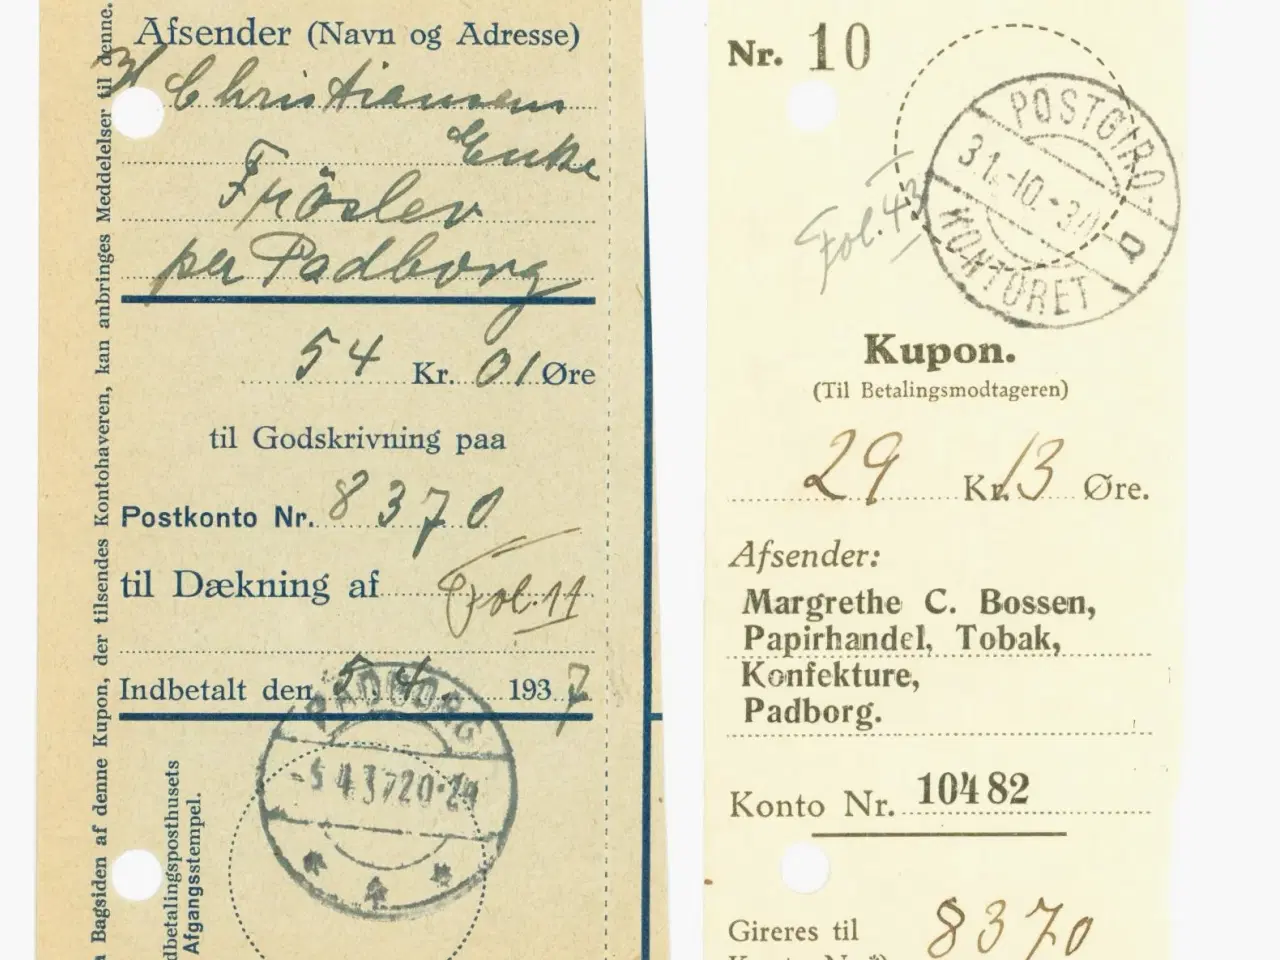 Afsender (Navn og Adresse)
Christiansens
Enke
Fröslev
per Padborg
54 Kr. 01 Øre
til Godskrivning paa
Postkonto Nr. 8370
til Dækning af Fol. 11
Indbetalt den 5. 4. 1937
PADBORG
-5.4.37 20-24
Bagsiden af denne Kupon, der tilsendes Kontohaveren, kan anbringes Meddelelser til denne.
dbetalingsposthusets
Afgangsstempel.
Nr. 10
POSTGIRO-
31.-10.-3
KONTORET
Fol. 43
Kupon.
(Til Betalingsmodtageren)
29 Kr. 13 Øre.
Afsender:
Margrethe C. Bossen,
Papirhandel, Tobak,
Konfekture,
Padborg.
Konto Nr. 10482
Gireres til 8370